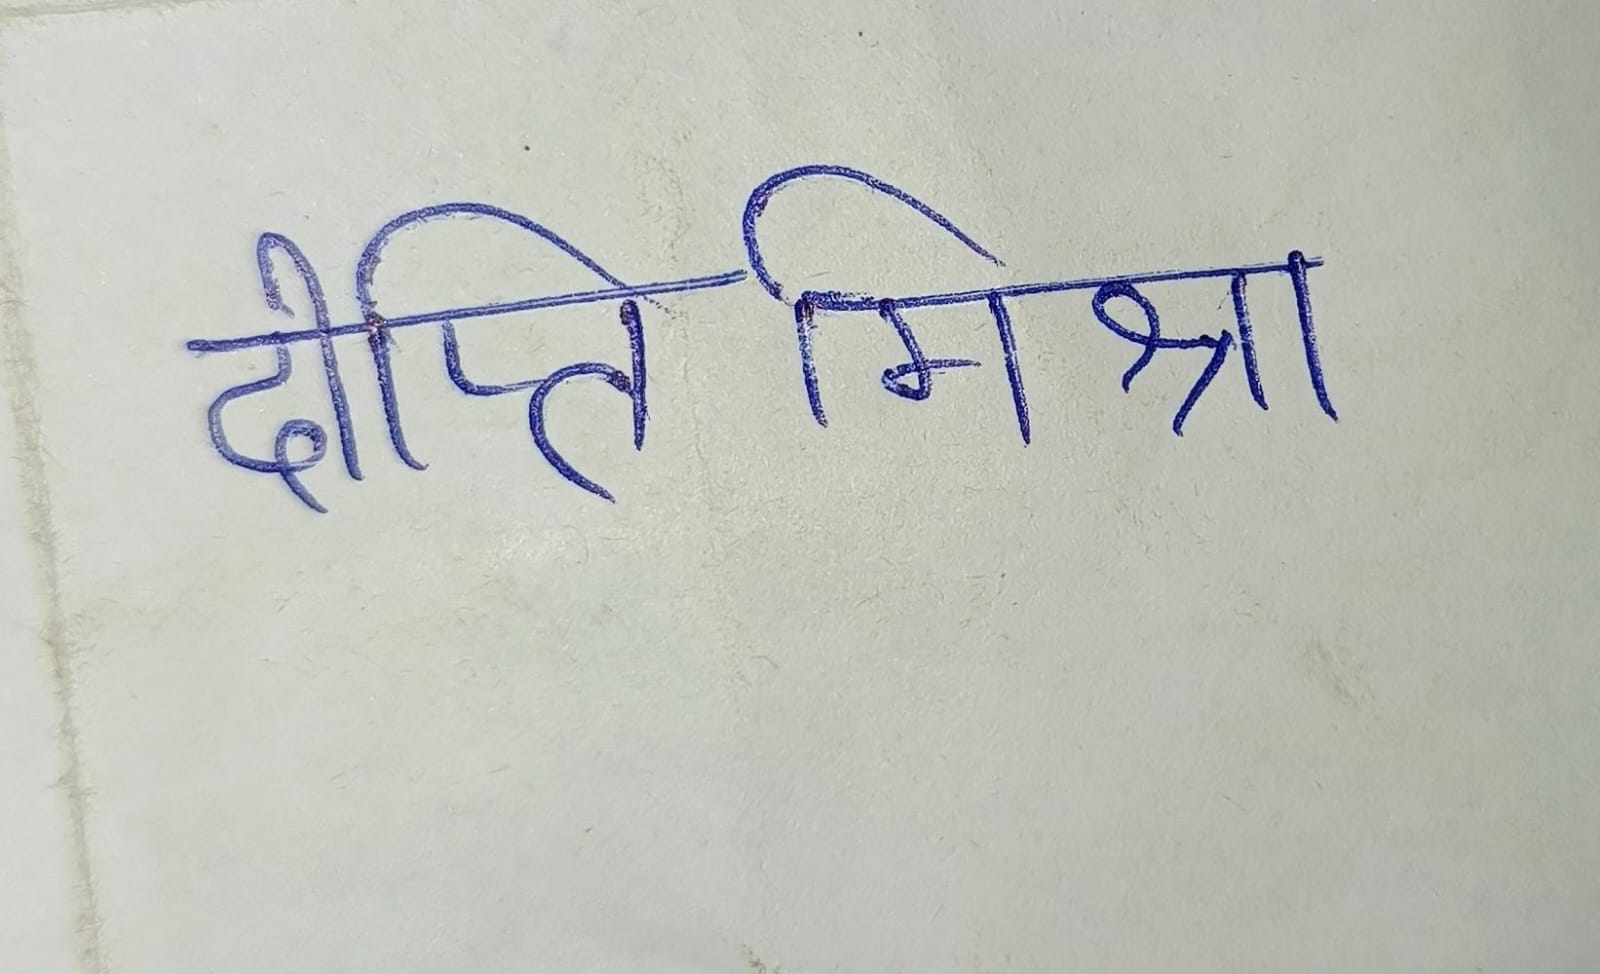 दीप्ति मिश्रा